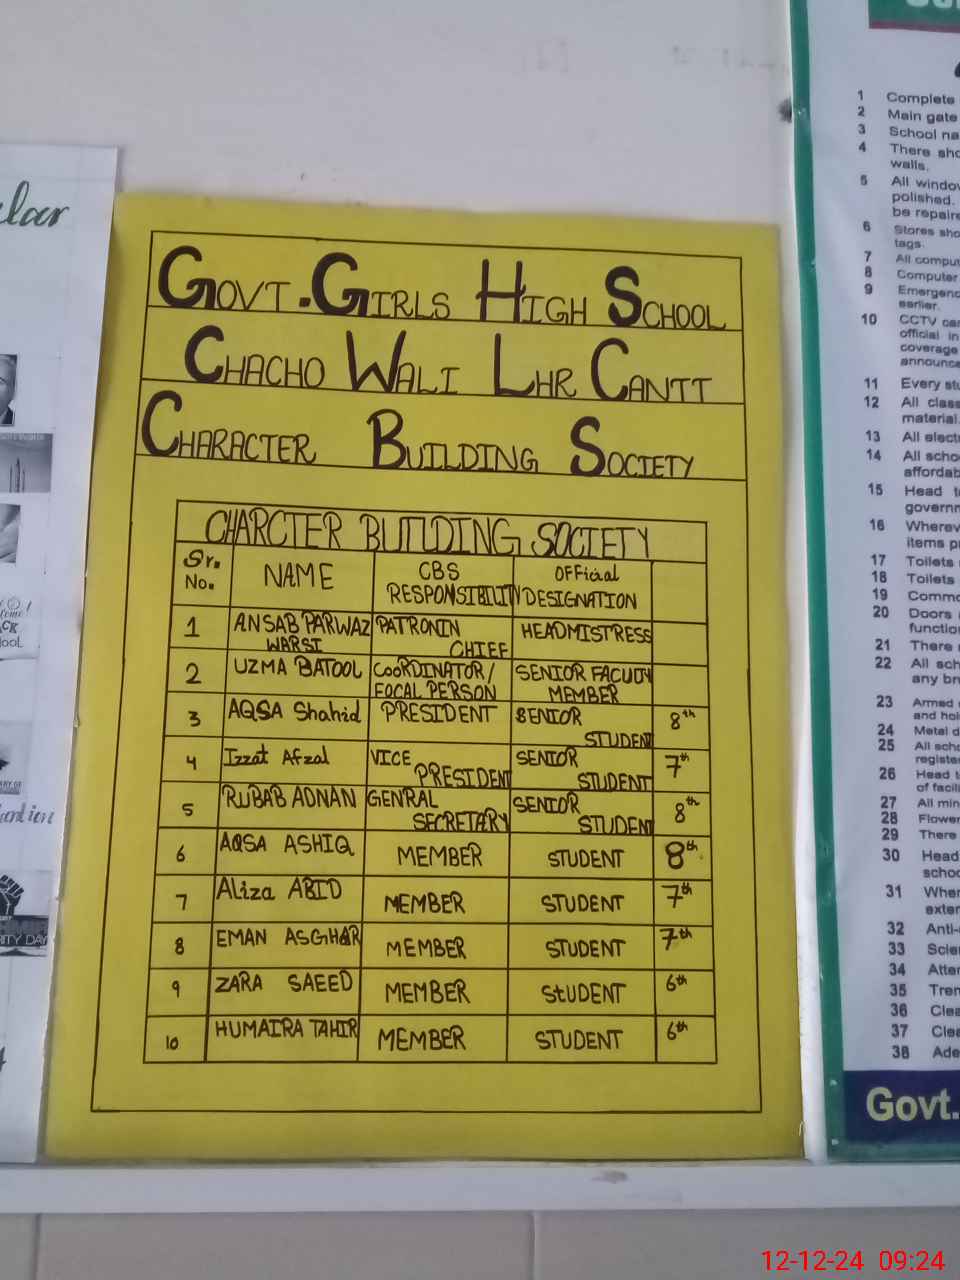 GOVT. GIRLS HIGH SCHOOL
CHACHO WALI LHR CANTT
CHARACTER BUILDING SOCIETY
CHARCTER BUILDING SOCIETY
Sr. No. NAME CBS RESPONSIBILITIN OFFicial DESIGNATION
1 ANSAB PARWAZ WARSI PATRONIN CHIEF HEADMISTRESS
2 UZMA BATOOL COORDINATOR/ FOCAL PERSON SENIOR FACULTY MEMBER
3 AQSA Shahid PRESIDENT SENIOR STUDENT 8th
4 Izzat Afzal VICE PRESIDENT SENIOR STUDENT 7th
5 RUBAB ADNAN GENRAL SECRETARY SENIOR STUDENT 8th
6 AQSA ASHIQ MEMBER STUDENT 8th
7 Aliza ABID MEMBER STUDENT 7th
8 EMAN ASGHAR MEMBER STUDENT 7th
9 ZARA SAEED MEMBER StUDENT 6th
10 HUMAIRA TAHIR MEMBER STUDENT 6th
1 Complete
2 Main gate
3 School na
4 There sho
walls.
5 All window
polished.
be repaire
6 Stores sho
tags.
7 All compu
8 Computer
9 Emergenc
earlier.
10 CCTV ca
official in
coverage
announce
11 Every stu
12 All class
material.
13 All electr
14 All scho
affordab
15 Head t
governm
16 Wherev
items p
17 Toilets
18 Toilets
19 Commo
20 Doors
functio
21 There
22 All sch
any br
23 Armed
and hol
24 Metal d
25 All scho
register
26 Head t
of facili
27 All min
28 Flower
29 There
30 Head
schoo
31 Wher
exter
32 Anti-
33 Scien
34 Atter
35 Tren
36 Clea
37 Clea
38 Ade
Govt.
12-12-24 09:24